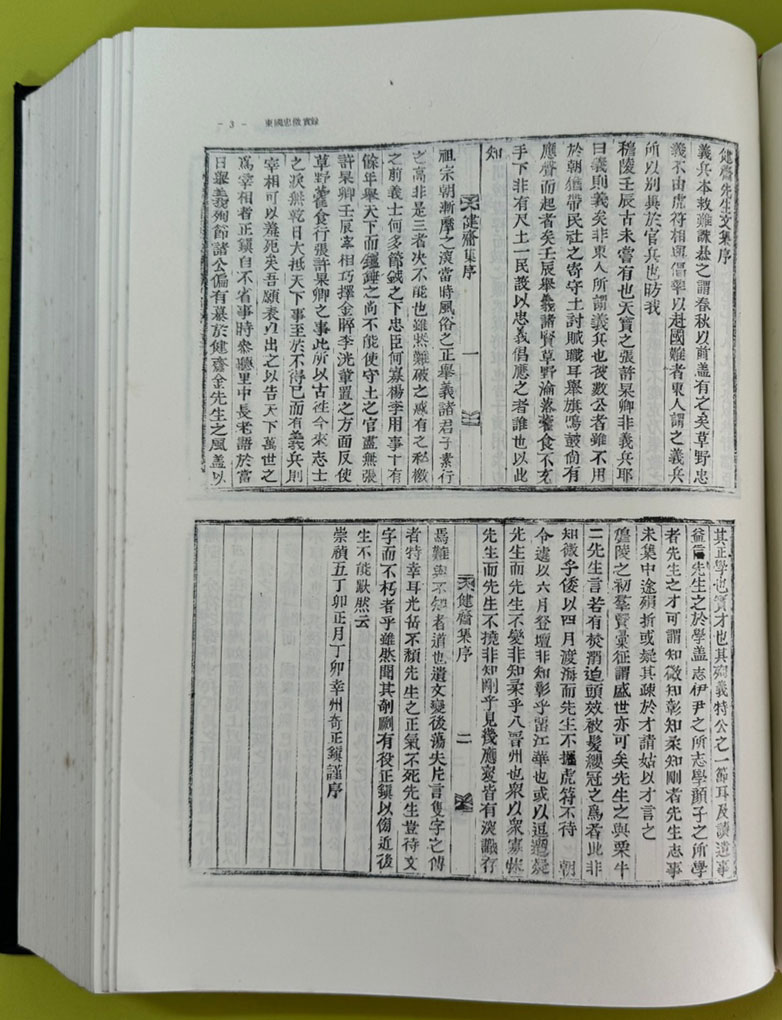 - 3 -　東國忠徵實錄
健齋先生文集序
義兵本救難諫𣓪之謂春秋以前盖有之矣草野忠
義不由虎符相與倡舉以赴國難者東人謂之義兵
所以別與於官兵也昉我
穆陵壬辰古未嘗有也天寶之張許杲卿非義兵耶
曰義則義矣非東人所謂義兵也彼數公者雖不用
於朝猶帶民社之寄守土討賊職耳舉旗鳴鼓尙有
應聲而起者矣壬辰舉義諸賢草野淪落藿食不充
手下非有尺土一民設以忠義倡應之者誰也以此
知
健齋集序
一
祖宗朝漸摩之深當時風俗之正舉義諸君子素行
之高非是三者决不能也雖然難破之惑有之私檄
之前義士何多節鉞之下忠臣何寡楊李用事十有
餘年舉天下而錘之尙不能使守土之官盡無張
許杲卿壬辰宰相巧擇金睟李洸輩置之方面反使
草野藿食行張許杲卿之事此所以古徃今來志士
之淚無乾日大抵天下事至於不得已而有義兵則
宰相可以羞死矣吾願表且出之以告天下萬世之
爲宰相者正鎭自不省事時叅聽里中長老語於當
日舉義殉節諸公偏有慕於健齋金先生之風盖以
其正學也實才也其殉義特公之一節耳及讀遺事
益信先生之於學盖志伊尹之所志學顔子之所學
者先生之才可謂知微知彰知柔知剛者先生志事
未集中途殞折或疑其疎於才請姑以才言之
穆陵之初羣賢彙征謂盛世亦可矣先生之與栗牛
二先生言若有焚溺迫頭效被髮纓冠之爲者此非
知微乎倭以四月渡海而先生不握虎符不待　朝
令遽以六月登壇非知彰乎留江華也或以逗遛疑
先生而先生不變非知柔乎入晋州也衆以衆寡怵
先生而先生不撓非知剛乎見幾應變皆有深識存
健齋集序
二
焉難與不知者道也遺文變後蕩失片言隻字之傳
者特幸耳光岳不頹先生之正氣不死先生豈待文
字而不朽者乎雖然聞其剞劂有役正鎭以傍近後
生不能默然云
崇禎五丁卯正月丁卯幸州奇正鎭謹序